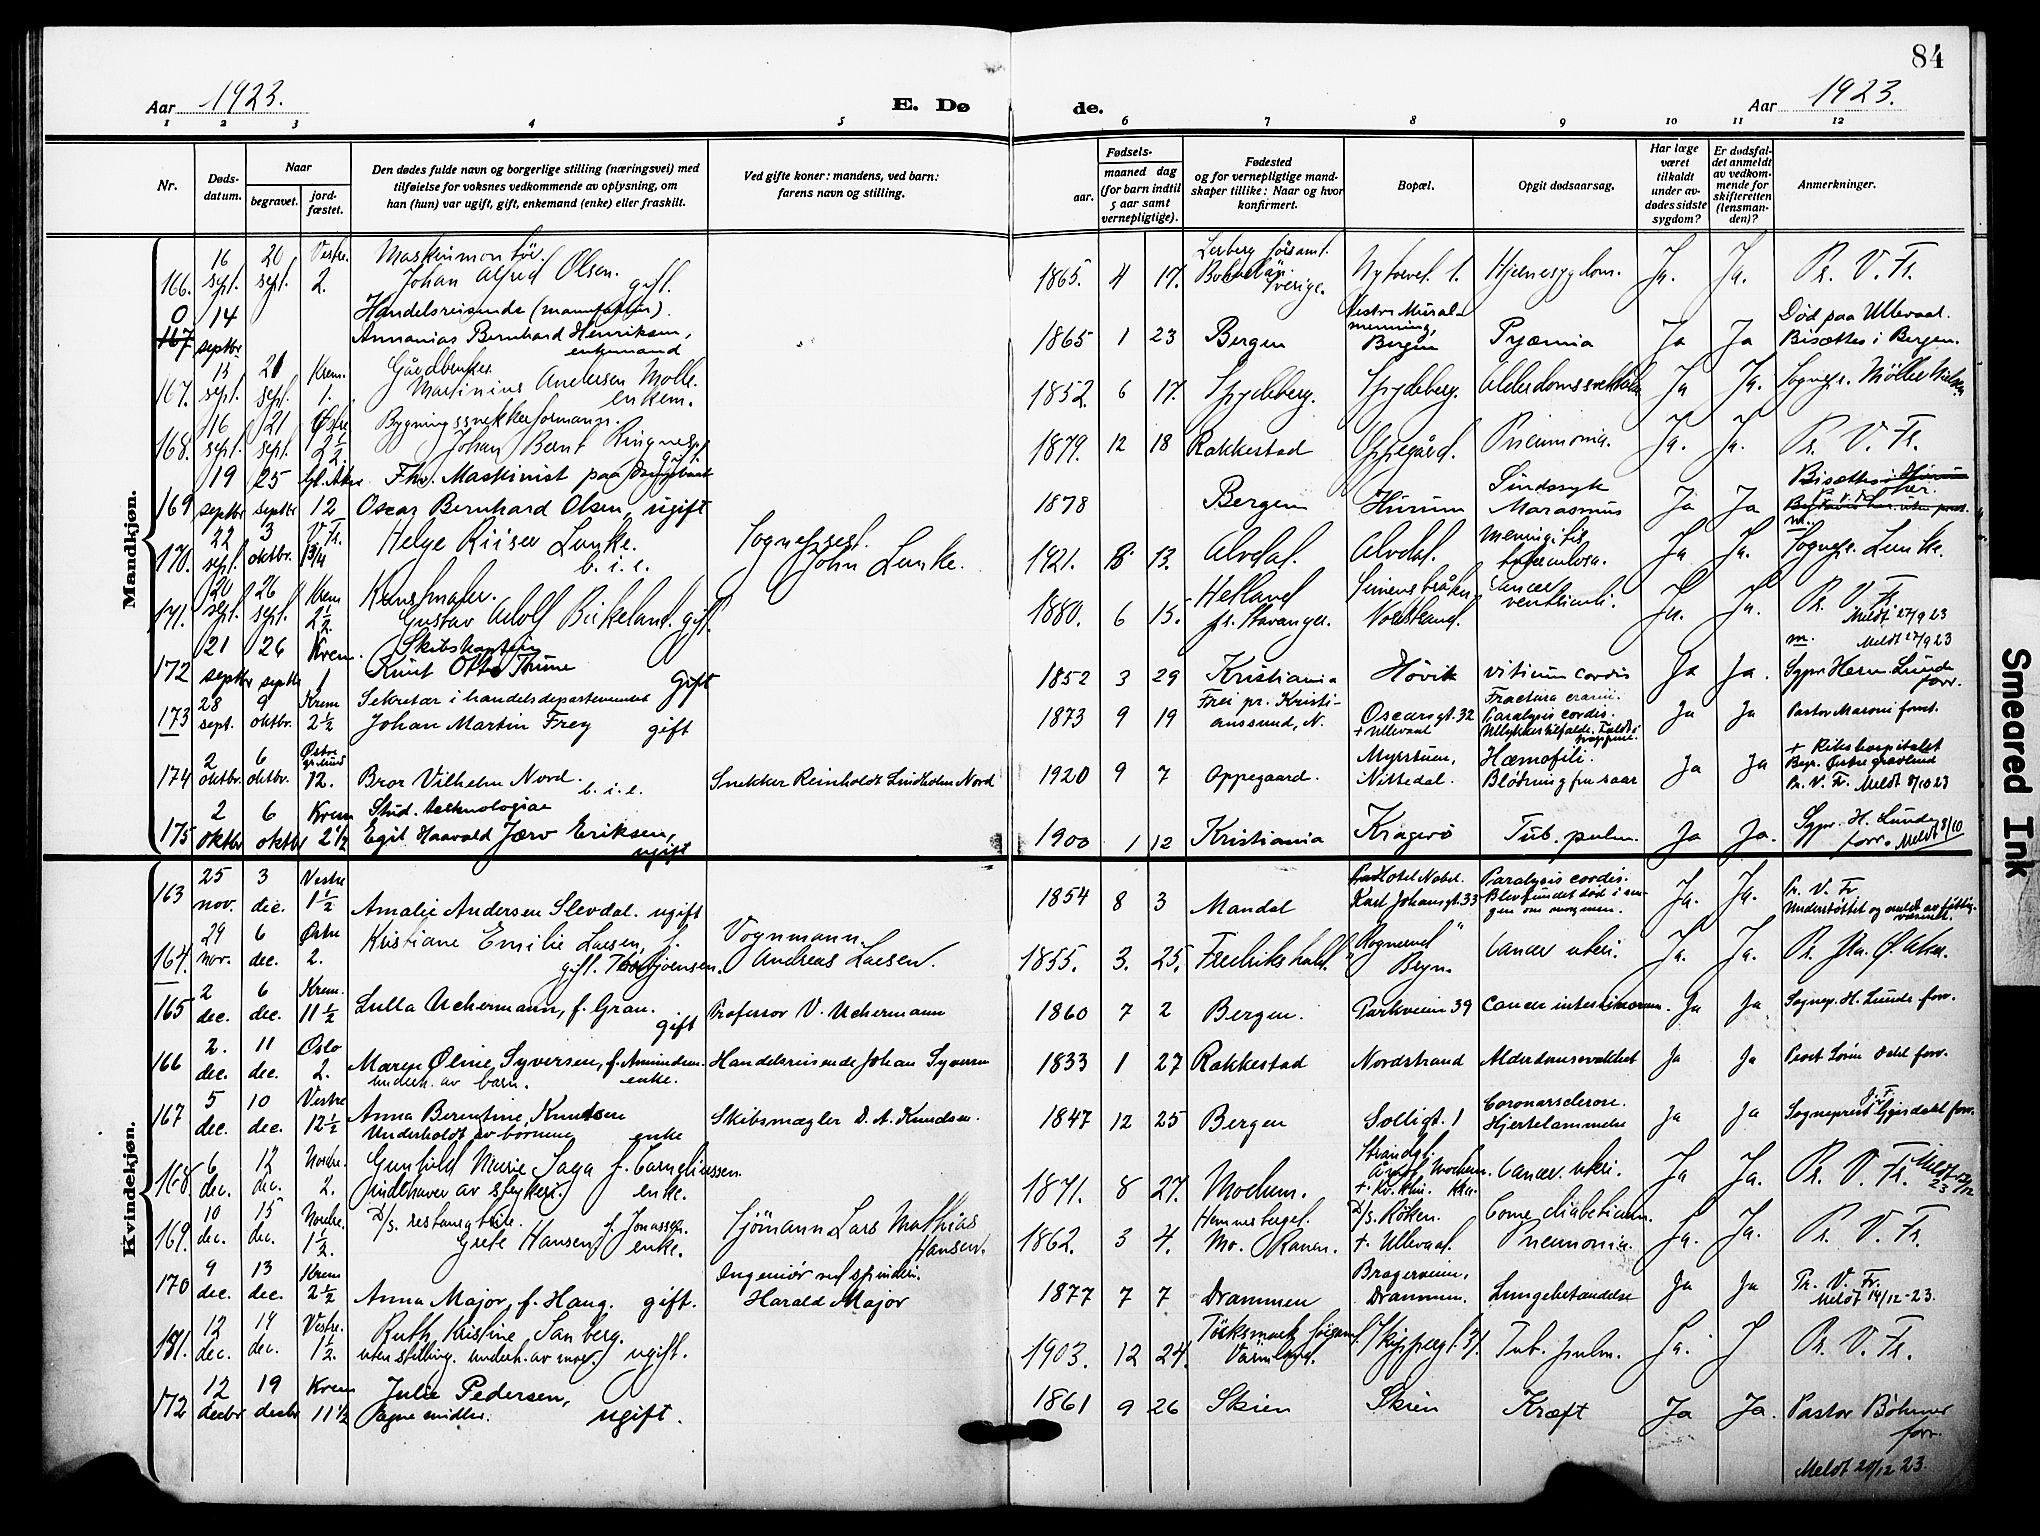 84
Aar 1923.
E. Dø de.
Aar 1923.
1 2 3 4 5 6 7 8 9 10 11 12
Nr.
Døds-
datum.
Naar
begravet.
jord-
fæstet.
Den dødes fulde navn og borgerlige stilling (næringsvei) med
tilføielse for voksnes vedkommende av oplysning, om
han (hun) var ugift, gift, enkemand (enke) eller fraskilt.
Ved gifte koner: mandens, ved barn:
farens navn og stilling.
Fødsels-
aar.
maaned dag
(for barn indtil
5 aar samt
vernepligtige).
Fødested
og for vernepligtige mand-
skaper tillike: Naar og hvor
konfirmert.
Bopæl.
Opgit dødsaarsag.
Har læge
været
tilkaldt
under av-
dødes sidste
sygdom?
Er dødsfal-
det anmeldt
av vedkom-
mende for
skifteretten
(lensman-
den)?
Anmerkninger.
Mandkjøn.
166. 16 sept. 20 sept. Vestre 2.
Maskinmontör.
Johan Alfred Olsen. gift.
1865. 4 17. Sverige. Hjernesygdom. Ja. Ja. Pr. V. Fr.
0 167 14 septbr
Handelsreisende (manufaktur).
Annanias Bernhard Henriksen,
enkemand
1865 1 23 Bergen Bergen Pyæmia Ja Ja
Død paa Ullevaal.
Bisættes i Bergen.
167. 15 sept. 21 sept. Krem. 1.
Gårdbruker
Martinius Andersen Molle.
enkem.
1852. 6 17. Spydeberg. Spydeberg. Ja Ja.
168. 16 sept. 21 sept. Østre 2½
Bygningssnekkerformann.
Johan Bernt Ringnes
gift.
1879. 12 18 Rakkestad Oppegård. Pneumonia. Ja. Ja. Pr. V. Fr.
169 19 septbr 25 septbr Gl. Aker 12
Fhv. Maskinist paa
Oscar Bernhard Olsen, ugift
1878 Bergen Hurum Sindssyk
Marasmus Ja Ja
170. 22 sept. 3 oktbr. V. Fr.
Helge Riiser Lunke.
b. i. e.
Sogneprest
John Lunke.
1921. 13. Alvdal. Alvdal. Meningitis
tuberculosa. Ja Ja. Sognepr. Lunke.
171. 20 sept. 26 sept. Krem 2½
Kunstmaler.
Gustav Adolf Birkeland. gift.
1880. 6 15. Helland
pr. Stavanger. Cancer
ventriculi. Ja. Ja. Pr. V. Fr.
Meldt 27/9 23
172 21 septbr 26 septbr Krem. 1
Skibskaptein
Knut Otto Thrane gift
1852 3 29 Kristiania Høvik vitium cordis Ja Ja.
m. Meldt 27/9 23
Sgpr. Herm. Lunde
forr.
173 28 sept. 9 oktbr. Krem 2½
Sekretær i handelsdepartementet
Johan Martin Frey gift
1873 9 19 Frei pr. Kristi-
anssund, N. Oscarsgt. 32
+ Ullevaal
Fractura cranii.
Paralysis cordis. Ja Ja Pastor Maroni forret.
174 2 oktbr. 6 oktbr. Østre gravlund 12.
Bror Vilhelm Nord.
b. i. e.
Snekker Reinholdt Lindholm Nord
1920 9 7 Oppegaard. Nittedal. Hæmofili.
Blødning fra saar Ja Ja
+ Rikshospitalet
Begr. Østre gravlund
Pr. V. Fr. Meldt 8/10 23
175 2 oktbr 6 oktbr Krem 2½
Stud. technologiae
Egil Haavald Jærv Eriksen,
ugift
1900 1 12 Kristiania Kragerö Tub. pulm. Ja Ja.
Sgpr. H. Lunde
forr. Meldt 8/10
Kvindekjøn.
163 25 nov. 3 dec. Vestre 1½
Amalie Andersen Slevdal. ugift
1854 8 3 Mandal Hotel Nobel.
Karl Johansgt. 33
Paralysis cordis.
Blev fundet død i sen-
gen om morgenen. Ja. Ja. Pr. V. Fr.
164. 29 nov. 6 dec. Østre 2.
Kristiane Emilie Larsen, f.
gift. Torbjörnsen.
Vognmann
Andreas Larsen.
1855. 3. 25. Fredrikshald. Bryn. Cancer uteri. Ja. Ja.
165 2 dec. 6 dec. Krem. 11½
Lulla Uchermann, f. Gran.
gift
Professor V. Uchermann
1860 7 2 Bergen. Parkveien 39 Cancer intestinorum. Ja Ja Sognepr. H. Lunde forr.
166 2. dec. 11 dec. Oslo 2.
Maren Oline Syversen, f. Amundsen.
Underh. av barn. enke.
Handelsreisende Johan Syversen
1833 1 27 Rakkestad Nordstrand Alderdomssvakhet Ja Ja Prost Sörin Dahl forr.
167 5 dec. 10 dec. Vestre 12½
Anna Berentine Knutsen
Underholdt av börnene enke
Skibsmægler D. A. Knudsen.
1847 12 25 Bergen Solligt. 1 Coronarsclerose.
Hjertelammelse Ja Ja
168. 6 dec. 12 dec. Nordre. 2.
Gunhild Marie Saga f. Corneliussen.
Indehaver av strykeri. enke.
1871. 8 27. Modum. Cancer uteri. Ja Ja. Pr. V. Fr.
169. 10 dec. 15 dec. Nordre. 1½.
D/s. restauratrice.
Grete Hansen f. Jonassen
enke.
Sjömann Lars Mathias
Hansen.
1862. 3 4. Hemnesberget.
Mo. Ranen. D/s. Röken.
+ Ullevaal. Coma diabeticum.
Pneumonia. Ja. Ja. Pr. V. Fr.
170 9 dec. 13 dec. Krem 2½
Anna Major, f. Haug. gift.
Harald Major
1877 7 7 Drammen Bragerveien,
Drammen. Lungebetændelse Ja Ja
Pr. V. Fr.
Meldt 14/12-23.
171. 12 dec. 14 dec. Vestre. 1½.
Ruth Kristine Sanberg.
uten stilling. underh. av mor. ugift.
1903. 12 24. Värmland. Tub. pulm. Ja. J Pr. V. Fr.
172 12 decbr 19 decbr Krem 11½
Julie Pedersen,
ugift.
1861 9 26 Skien Skien Kræft Ja Ja.
Pastor Böhmer
forr.
Meldt 20/12 23.
Smeared Ink